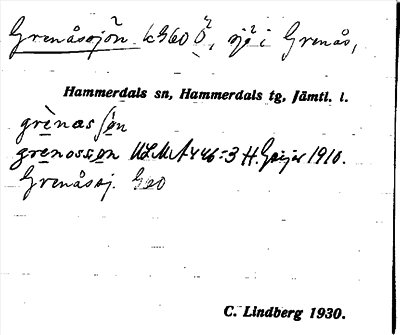 Grenåssjön kG60 Ö, sjö i Grenås,
Hammerdals sn, Hammerdals tg, Jämtl. l.
grènas ʃøn
grenossøn ULMA 446:3 H. Geijer 1910.
Grenåssj. G60
C. Lindberg 1930.